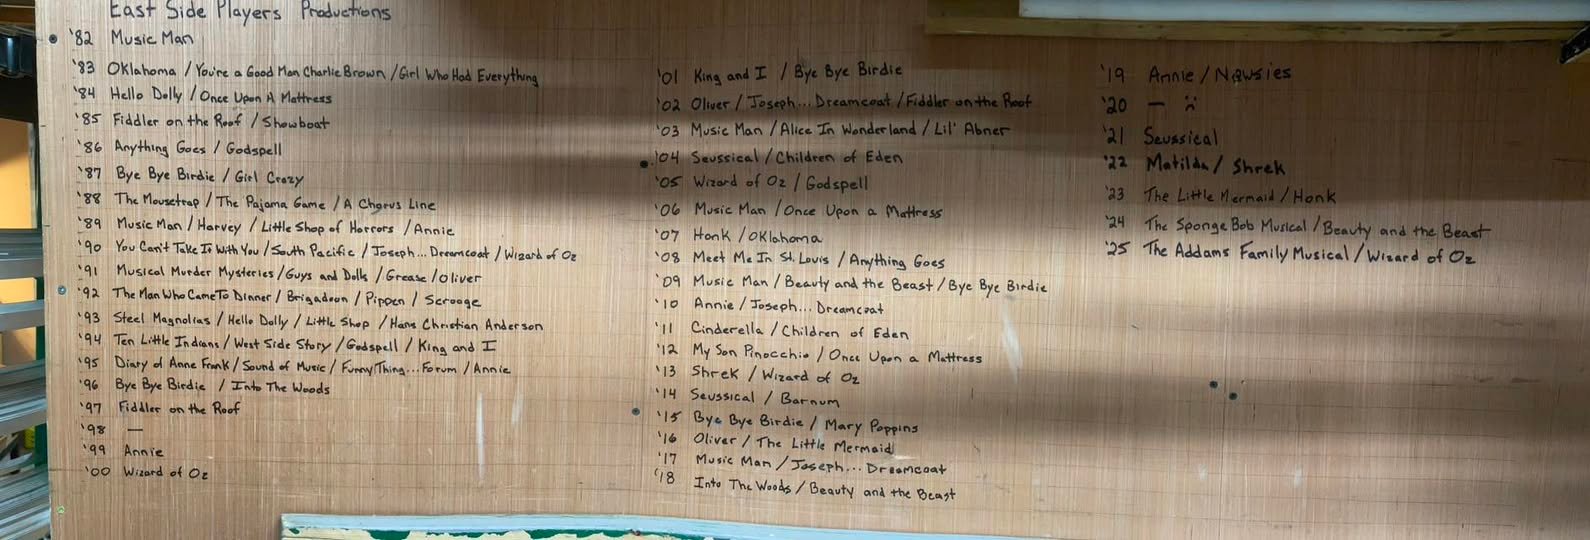 East Side Players Productions
'82 Music Man
'83 Oklahoma / You're a Good Man Charlie Brown / Girl Who Had Everything
'84 Hello Dolly / Once Upon A Mattress
'85 Fiddler on the Roof / Showboat
'86 Anything Goes / Godspell
'87 Bye Bye Birdie / Girl Crazy
'88 The Mousetrap / The Pajama Game / A Chorus Line
'89 Music Man / Harvey / Little Shop of Horrors / Annie
'90 You Can't Take It With You / South Pacific / Joseph... Dreamcoat / Wizard of Oz
'91 Musical Murder Mysteries / Guys and Dolls / Grease / Oliver
'92 The Man Who Came To Dinner / Brigadoon / Pippen / Scrooge
'93 Steel Magnolias / Hello Dolly / Little Shop / Hans Christian Anderson
'94 Ten Little Indians / West Side Story / Godspell / King and I
'95 Diary of Anne Frank / Sound of Music / Funny Thing... Forum / Annie
'96 Bye Bye Birdie / Into The Woods
'97 Fiddler on the Roof
'98 —
'99 Annie
'00 Wizard of Oz
'01 King and I / Bye Bye Birdie
'02 Oliver / Joseph... Dreamcoat / Fiddler on the Roof
'03 Music Man / Alice In Wonderland / Lil' Abner
'04 Seussical / Children of Eden
'05 Wizard of Oz / Godspell
'06 Music Man / Once Upon a Mattress
'07 Honk / Oklahoma
'08 Meet Me In St. Louis / Anything Goes
'09 Music Man / Beauty and the Beast / Bye Bye Birdie
'10 Annie / Joseph... Dreamcoat
'11 Cinderella / Children of Eden
'12 My Son Pinocchio / Once Upon a Mattress
'13 Shrek / Wizard of Oz
'14 Seussical / Barnum
'15 Bye Bye Birdie / Mary Poppins
'16 Oliver / The Little Mermaid
'17 Music Man / Joseph... Dreamcoat
'18 Into The Woods / Beauty and the Beast
'19 Annie / Newsies
'20 — :(
'21 Seussical
'22 Matilda / Shrek
'23 The Little Mermaid / Honk
'24 The Sponge Bob Musical / Beauty and the Beast
'25 The Addams Family Musical / Wizard of Oz